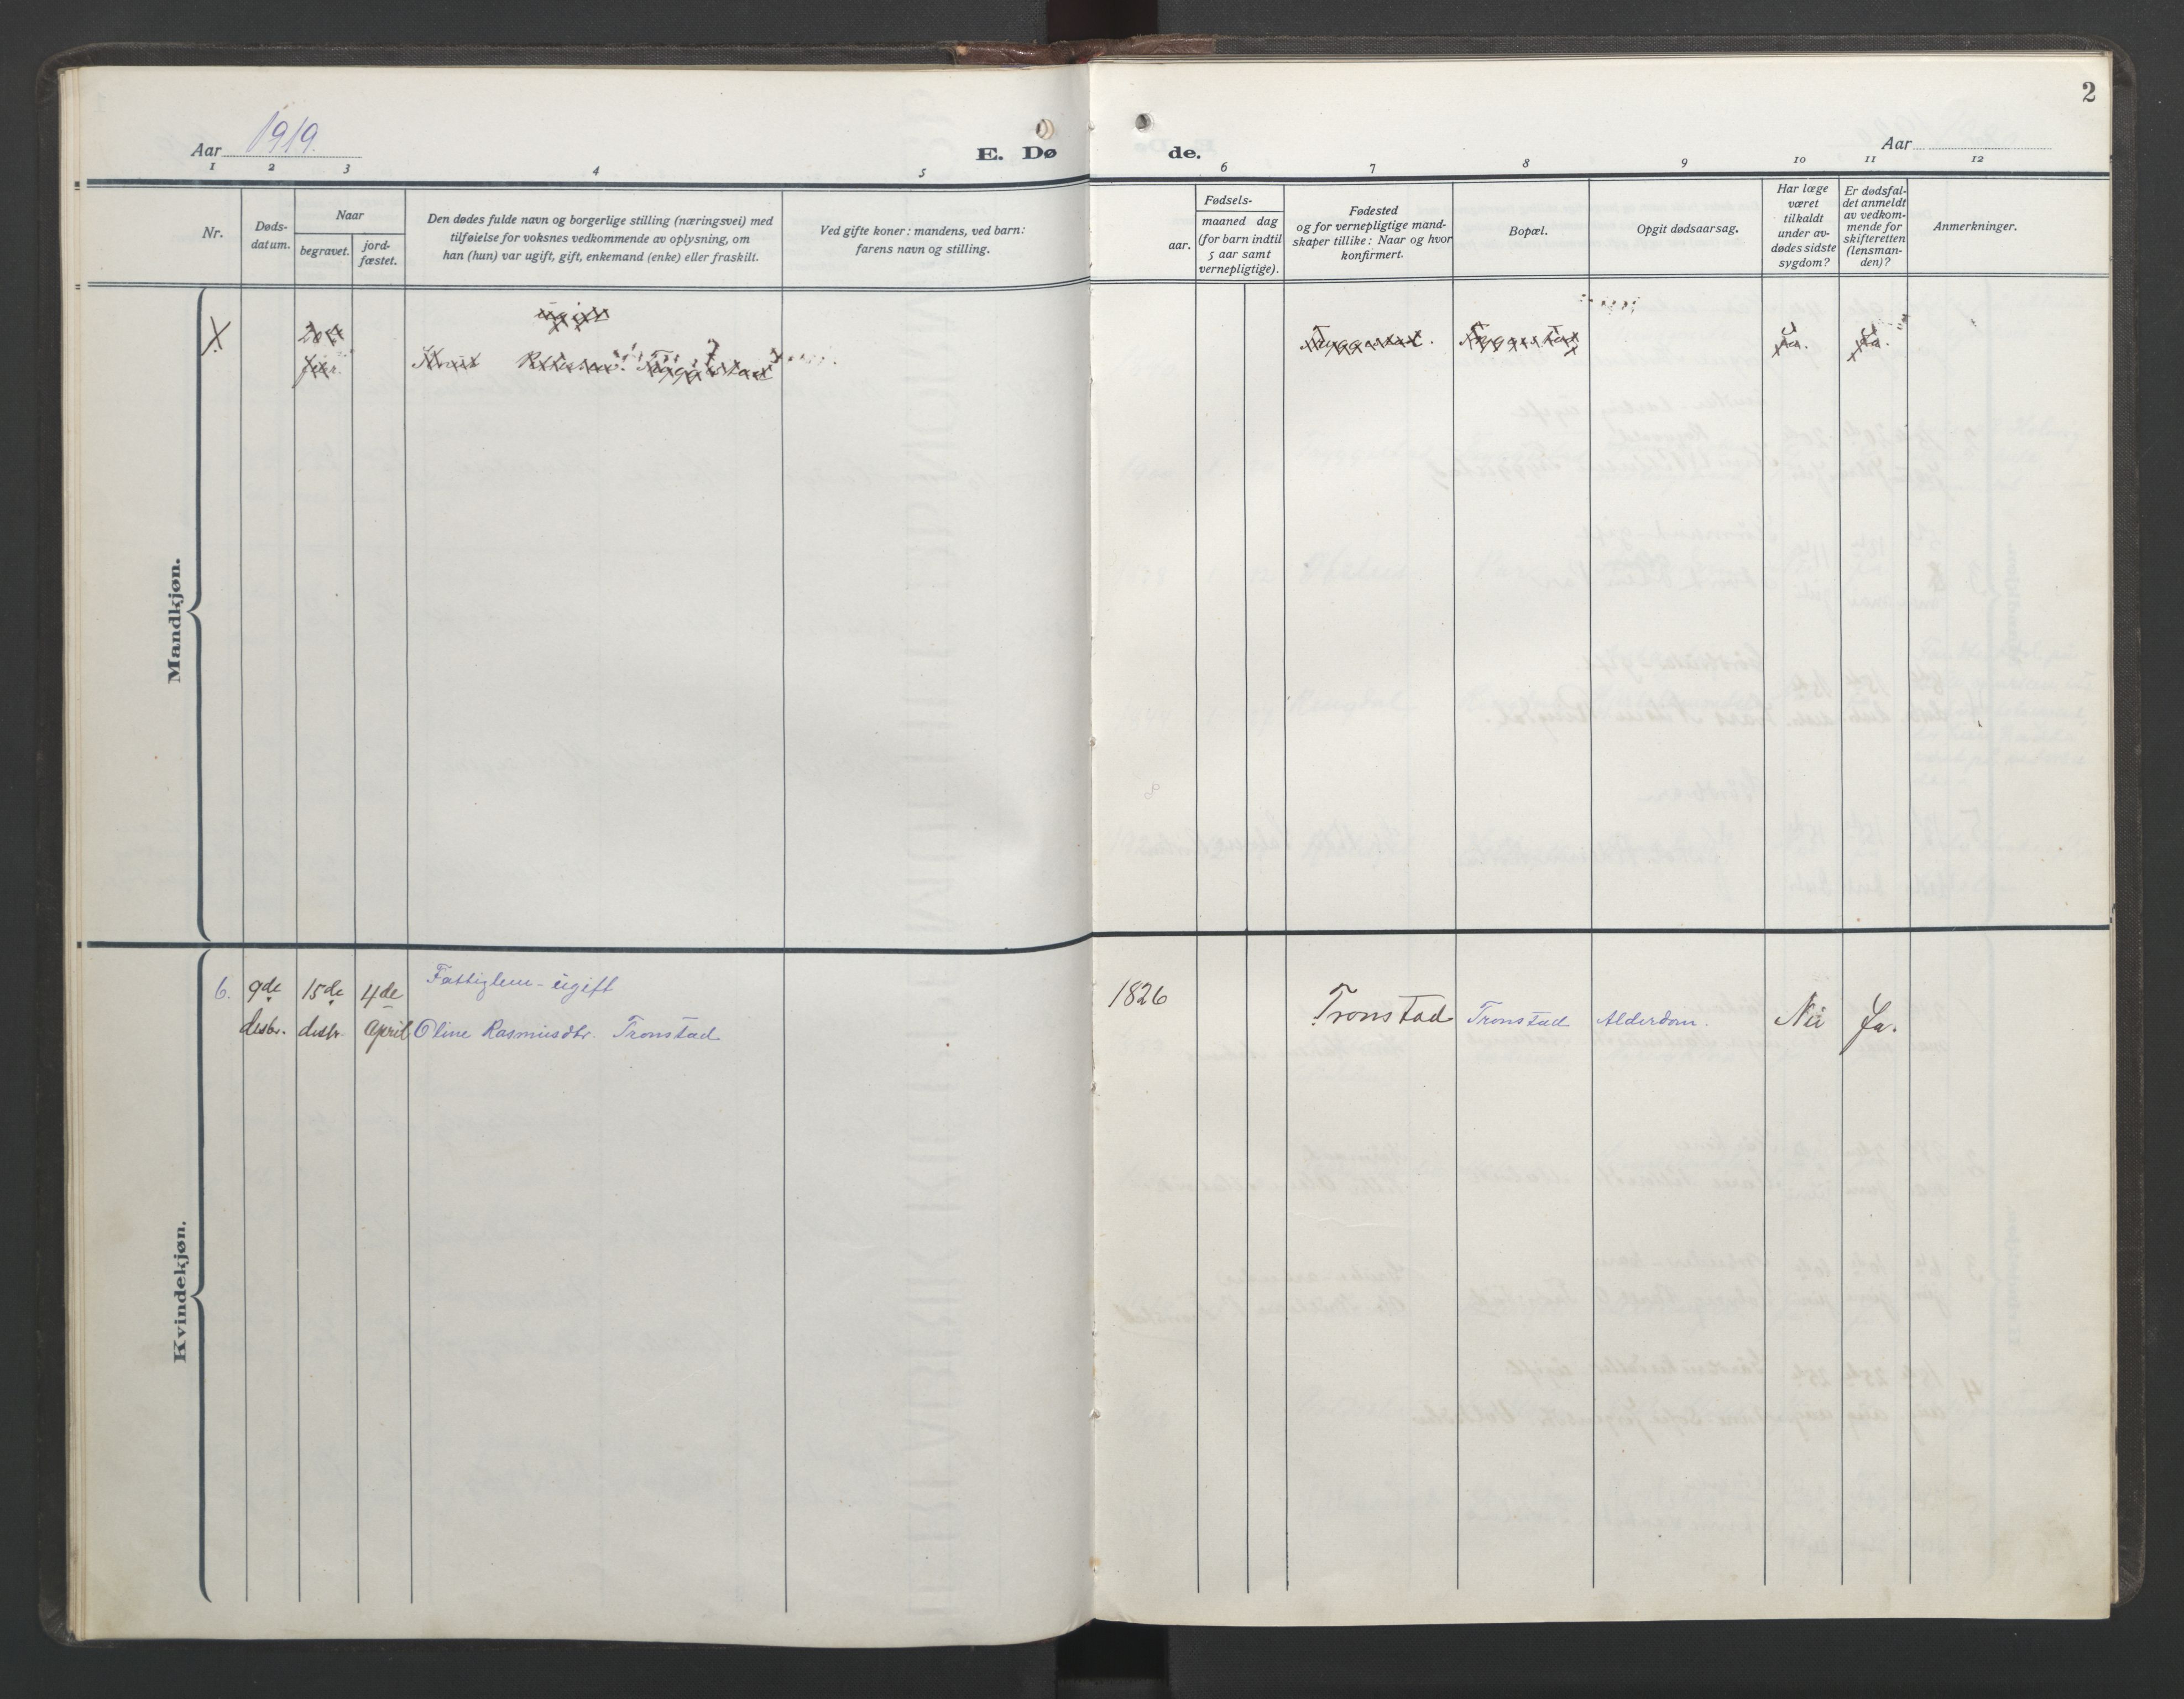 2
Aar 1919.
E. Dø
de.
Aar
1 2 3 4 5 6 7 8 9 10 11 12
Nr.
Døds-
datum.
Naar
begravet.
jord-
fæstet.
Den dødes fulde navn og borgerlige stilling (næringsvei) med
tilføielse for voksnes vedkommende av oplysning, om
han (hun) var ugift, gift, enkemand (enke) eller fraskilt.
Ved gifte koner: mandens, ved barn:
farens navn og stilling.
Fødsels-
aar.
maaned dag
(for barn indtil
5 aar samt
vernepligtige).
Fødested
og for vernepligtige mand-
skaper tillike: Naar og hvor
konfirmert.
Bopæl.
Opgit dødsaarsag.
Har læge
været
tilkaldt
under av-
dødes sidste
sygdom?
Er dødsfal-
det anmeldt
av vedkom-
mende for
skifteretten
(lensman-
den)?
Anmerkninger.
Mandkjøn.
ugift
Ja. Ja.
Kvindekjøn.
6. 9de 15de 4de Fattiglem - ugift
desbr. desbr. April Oline Rasmusdtr. Tronstad
1826 Tronstad Tronstad Alderdom. Nei Ja.